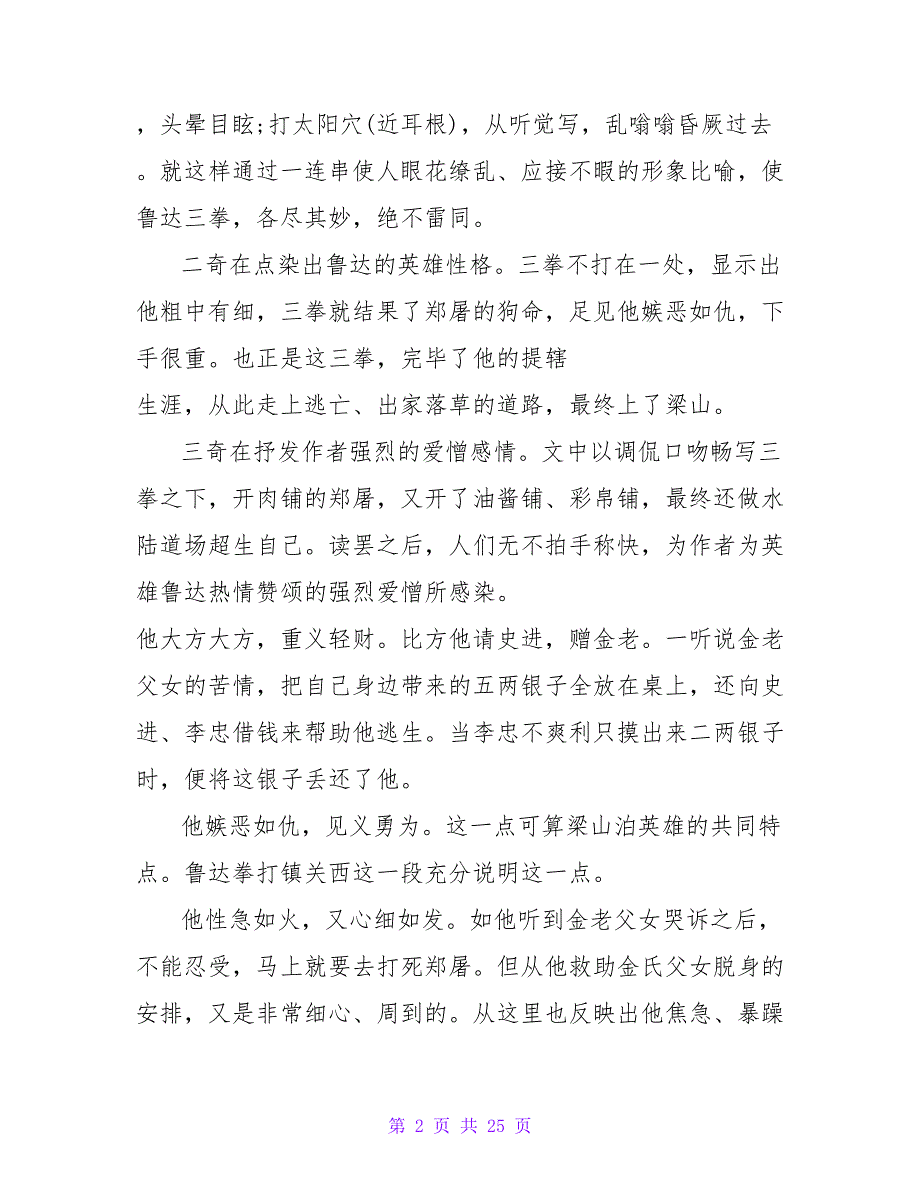 ，头晕目眩;打太阳穴(近耳根)，从听觉写，乱嗡嗡昏厥过去
。就这样通过一连串使人眼花缭乱、应接不暇的形象比喻，使
鲁达三拳，各尽其妙，绝不雷同。
二奇在点染出鲁达的英雄性格。三拳不打在一处，显示出
他粗中有细，三拳就结果了郑屠的狗命，足见他嫉恶如仇，下
手很重。也正是这三拳，完毕了他的提辖
生涯，从此走上逃亡、出家落草的道路，最终上了梁山。
三奇在抒发作者强烈的爱憎感情。文中以调侃口吻畅写三
拳之下，开肉铺的郑屠，又开了油酱铺、彩帛铺，最终还做水
陆道场超生自己。读罢之后，人们无不拍手称快，为作者为英
雄鲁达热情赞颂的强烈爱憎所感染。
他大方大方，重义轻财。比方他请史进，赠金老。一听说金老
父女的苦情，把自己身边带来的五两银子全放在桌上，还向史
进、李忠借钱来帮助他逃生。当李忠不爽利只摸出来二两银子
时，便将这银子丢还了他。
他嫉恶如仇，见义勇为。这一点可算梁山泊英雄的共同特
点。鲁达拳打镇关西这一段充分说明这一点。
他性急如火，又心细如发。如他听到金老父女哭诉之后，
不能忍受，马上就要去打死郑屠。但从他救助金氏父女脱身的
安排，又是非常细心、周到的。从这里也反映出他焦急、暴躁
第 2 页 共 25 页